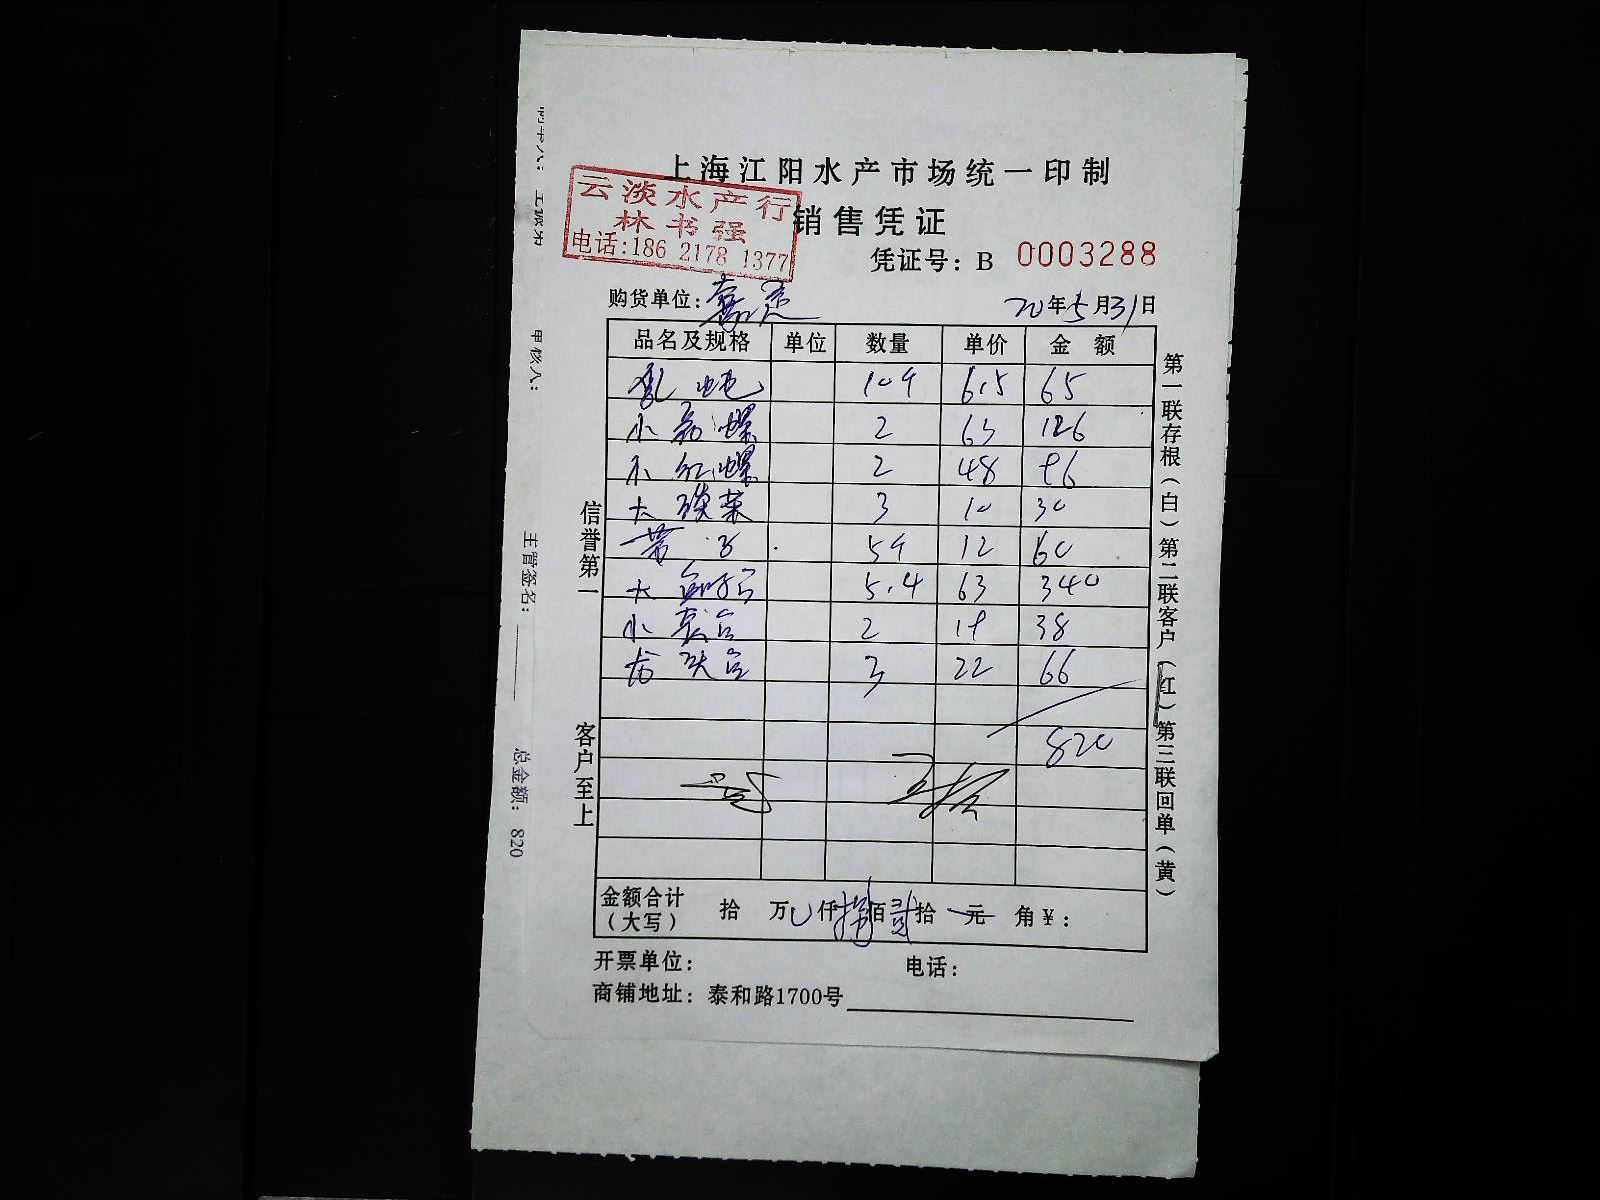 上海江阳水产市场统一印制
云淡水产行
林书强
电话:186 2178 1377
销售凭证
凭证号: B 0003288
购货单位:
20年5月31日
品名及规格 单位 数量 单价 金额
10斤 6.5 65
小 螺 2 63 126
小红螺 2 48 96
大 菜 3 10 30
5斤 12 60
大 5.4 63 340
小 2 19 38
龙头 3 22 66
820
金额合计(大写) 拾 万 仟 捌佰 贰拾 元 角 ¥:
开票单位: 电话:
商铺地址: 泰和路1700号
信誉第一 客户至上
第一联存根(白) 第二联客户(红) 第三联回单(黄)
甲核人:
主管签名:
总金额: 820